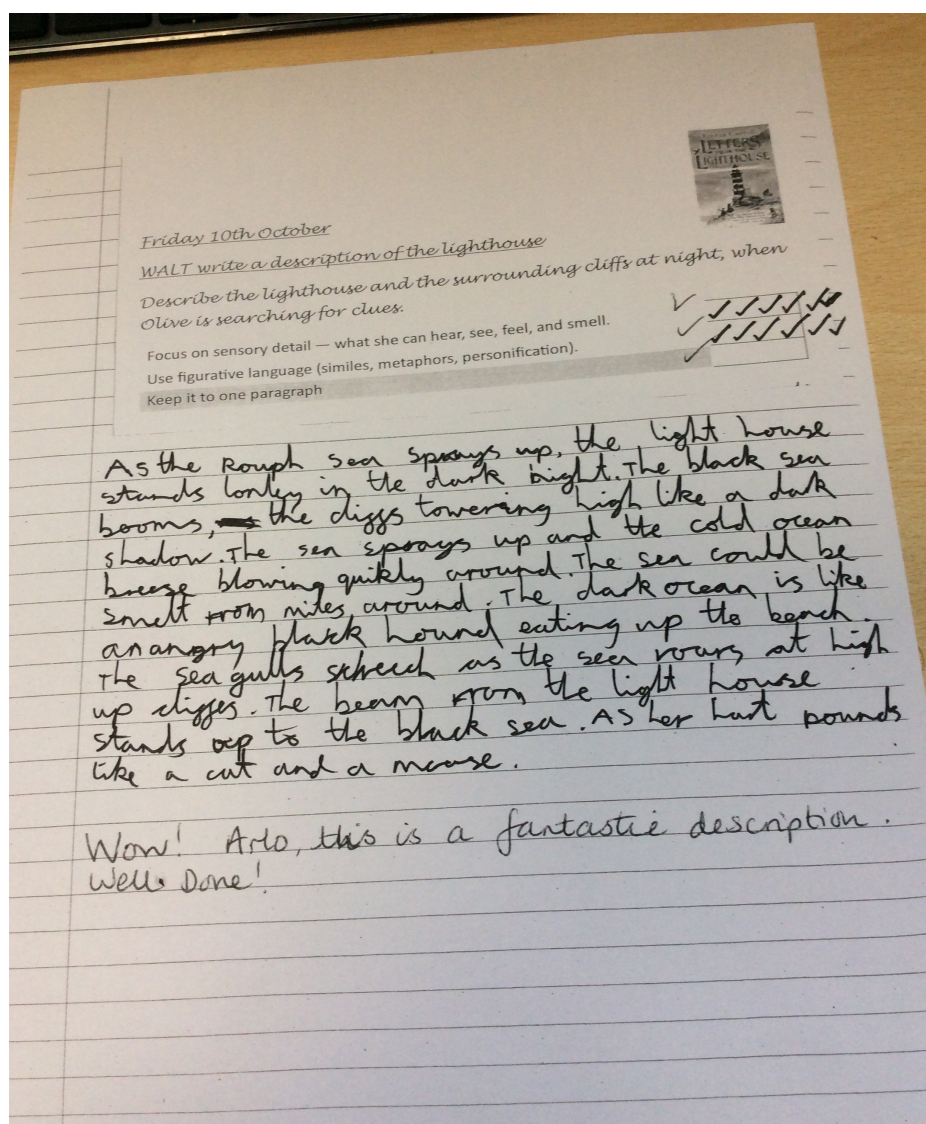 LETTERS
FROM THE
LIGHTHOUSE
Friday 10th October
WALT write a description of the lighthouse
Describe the lighthouse and the surrounding cliffs at night, when
Olive is searching for clues.
Focus on sensory detail — what she can hear, see, feel, and smell.
Use figurative language (similes, metaphors, personification).
Keep it to one paragraph
As the Rough sea sprays up, the light house
stands lonley in the dark night. The black sea
booms, the cliffs towering high like a dark
shadow. The sea sprays up and the cold ocean
breese blowing quikly around. The sea could be
smelt from miles around. The dark ocean is like
an angry black hound eating up the beach.
The sea gulls schreech as the sea roars at high
up cliffes. The beam from the light house
stands up to the black sea. As her hart pounds
like a cat and a mouse.
Wow! Arlo, this is a fantastic description.
Well Done!